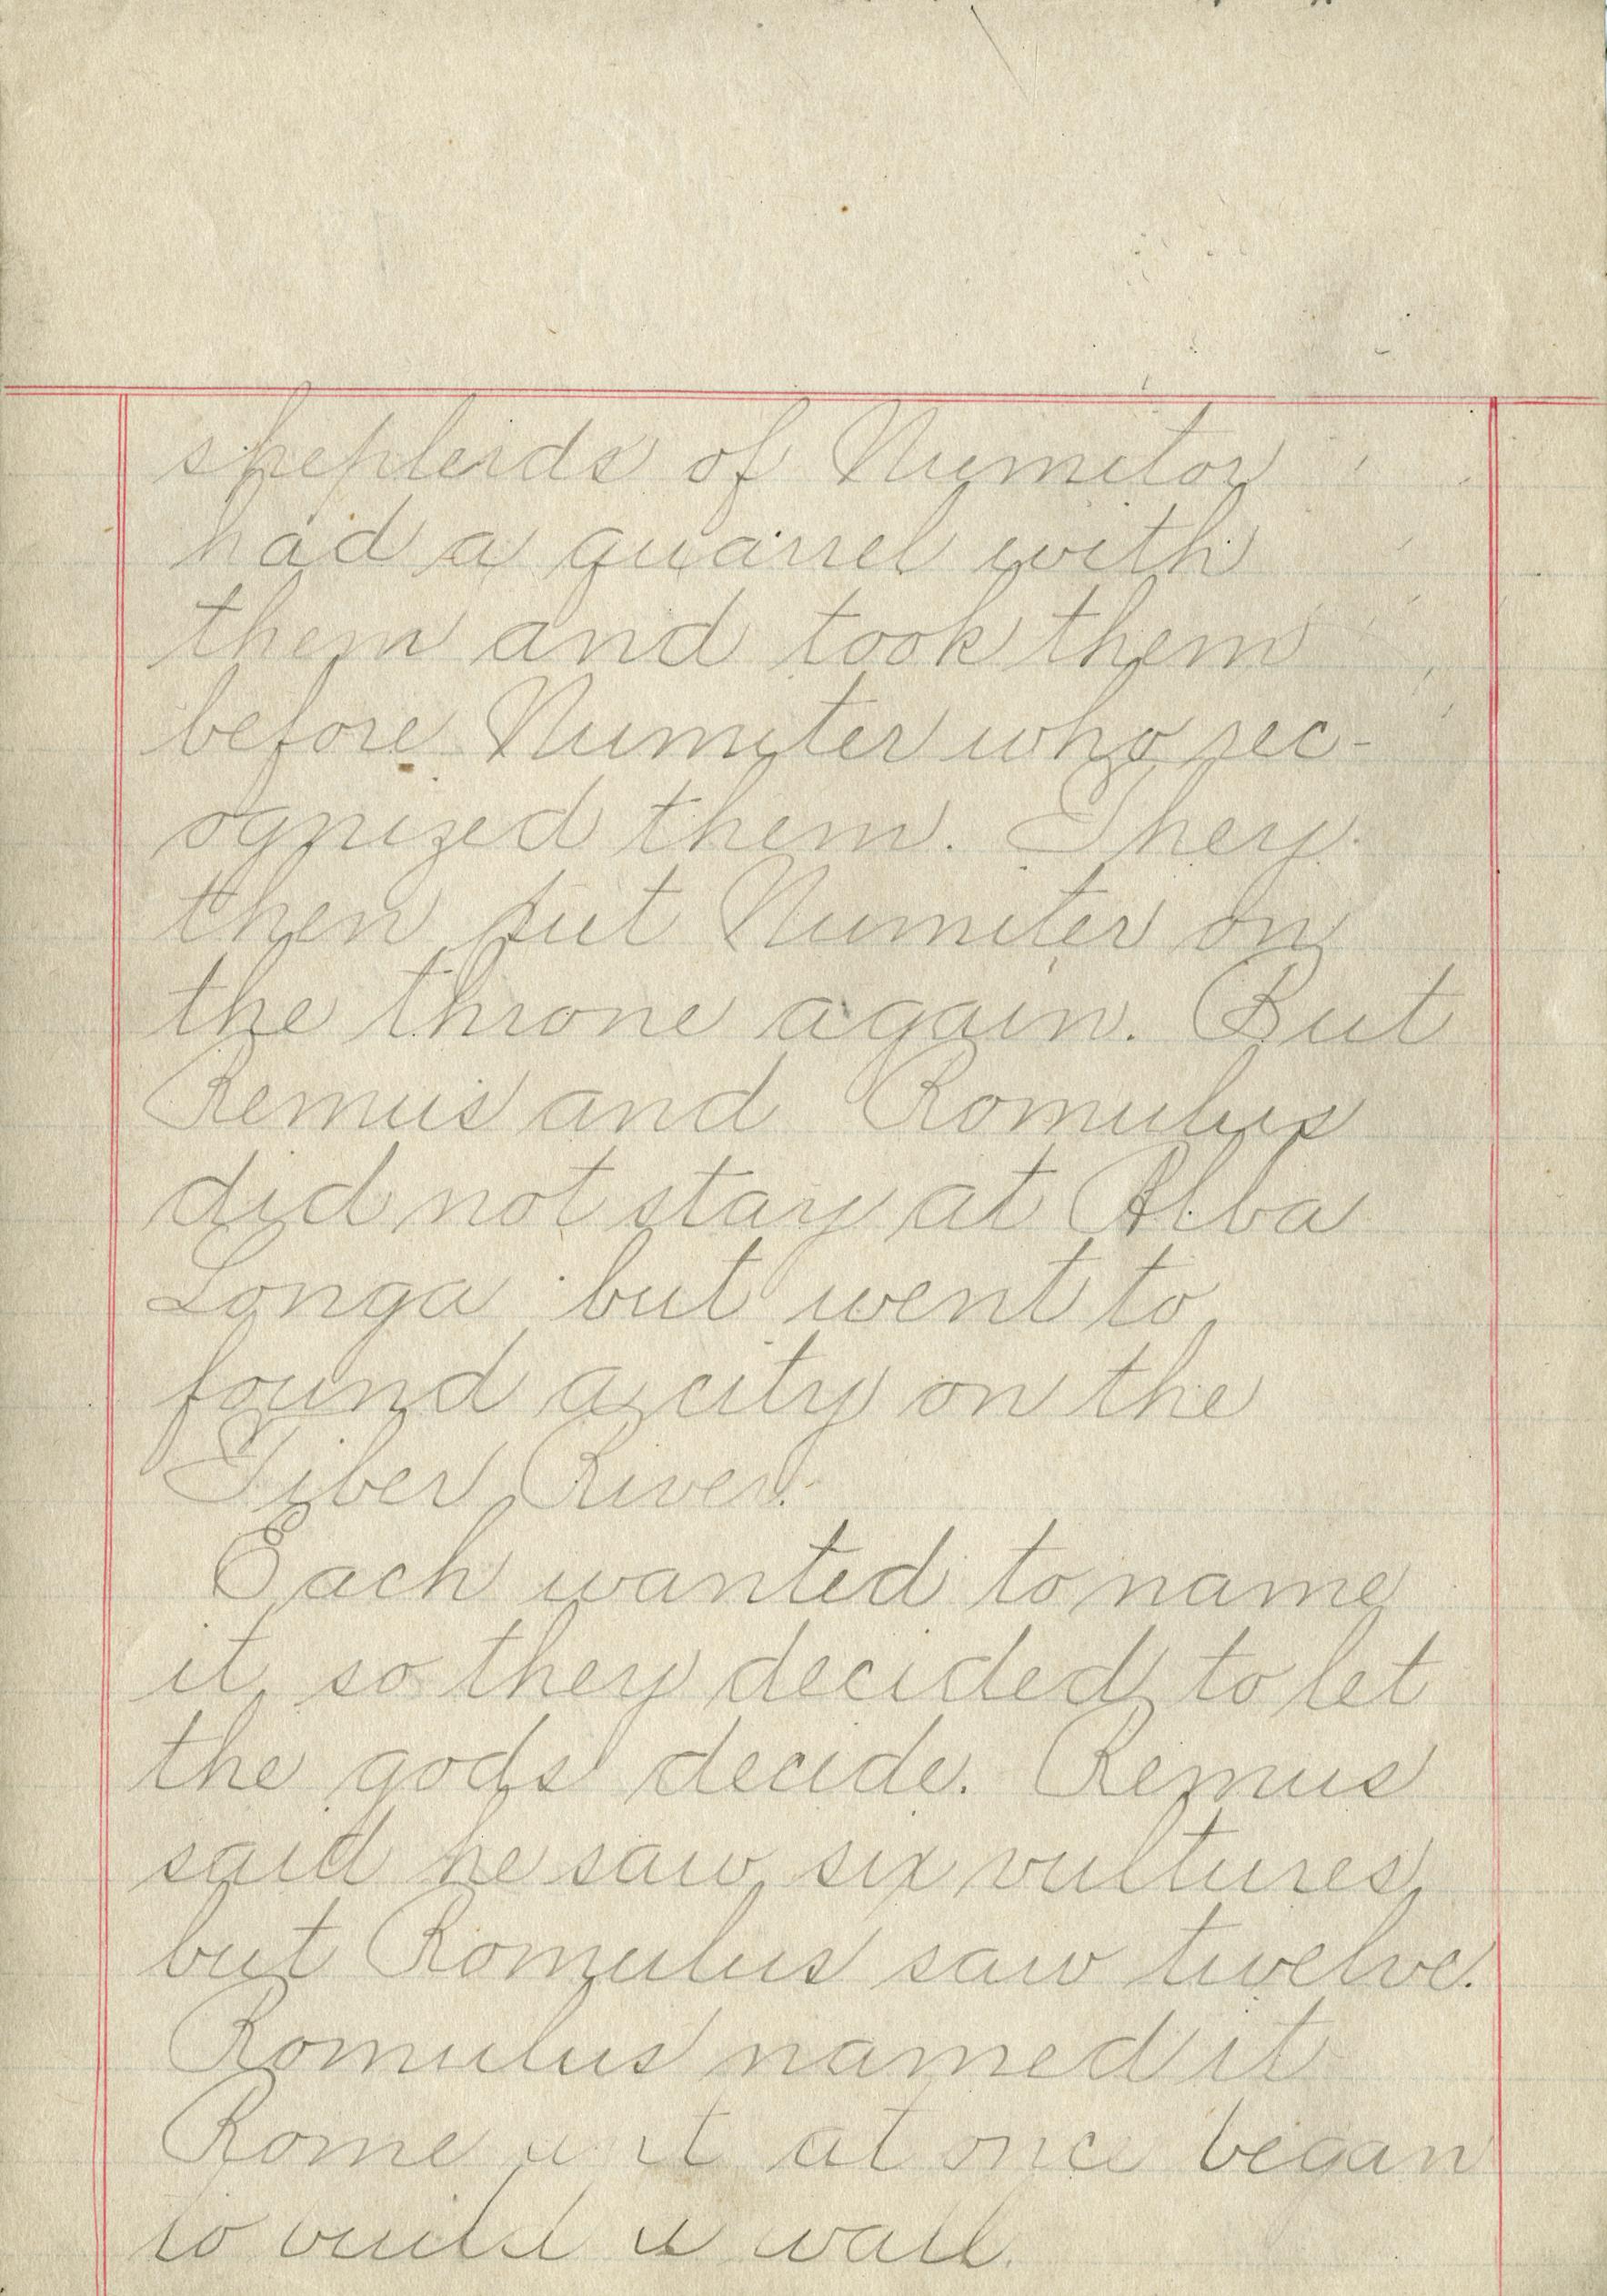 shepherds of Numitor
had a quarrel with
them and took them
before Numiter who rec-
ognized them. They
then put Numiter on
the throne again. But
Remus and Romulus
did not stay at Alba
Longa but went to
found a city on the
Tiber River.
Each wanted to name
it, so they decided to let
the gods decide. Remus
said he saw six vultures,
but Romulus saw twelve.
Romulus named it
Rome at once began
to build a wall.